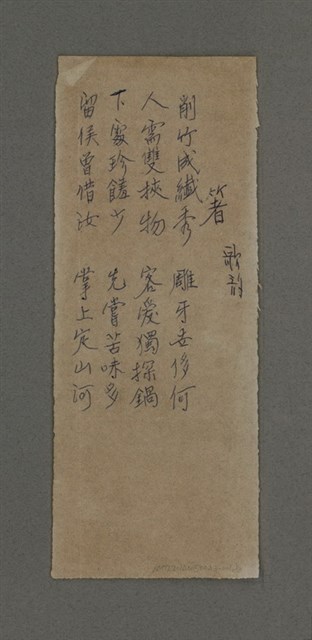 箸
歌韵
削竹成纖秀 雕牙去侈何
人需雙挾物 客愛獨探鍋
下處珍饈少 先嘗苦味多
留侯曾借汝 掌上定山河